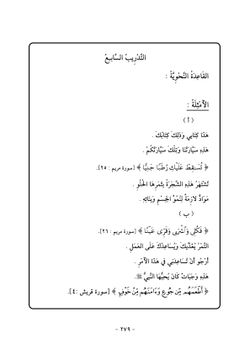 التَّدْرِيبُ السَّابِعُ
القَاعِدَةُ النَّحْوِيَّةُ :
الأَمْثِلَةُ :
( أ )
هَذَا كِتَابِي وَذَلِكَ كِتَابُكَ .
هَذِهِ سَيَّارَتُنَا وَتِلْكَ سَيَّارَتُكُمْ .
﴿ تُسَاقِطْ عَلَيْكِ رُطَبًا جَنِيًّا ﴾ [سورة مريم : ٢٥].
تَشْتَهِرُ هَذِهِ الشَّجَرَةُ بِثَمَرِهَا الحُلْوِ .
مَوَادُّ لازِمَةٌ لِنُمُوِّ الجِسْمِ وَبِنَائِهِ .
( ب )
﴿ فَكُلِي وَاشْرَبِي وَقَرِّي عَيْنًا ﴾ [سورة مريم : ٢٦].
التَّمْرُ يُغَذِّيكَ وَيُسَاعِدُكَ عَلَى العَمَلِ .
أَرْجُو أَنْ تُسَاعِدَنِي فِي هَذَا الأَمْرِ .
هَذِهِ وَجَبَاتٌ كَانَ يُحِبُّهَا النَّبِيُّ ﷺ.
﴿ أَطْعَمَهُم مِّن جُوعٍ وَءَامَنَهُم مِّنْ خَوْفٍ ﴾ [سورة قريش :٤].
- ٢٧٩ -